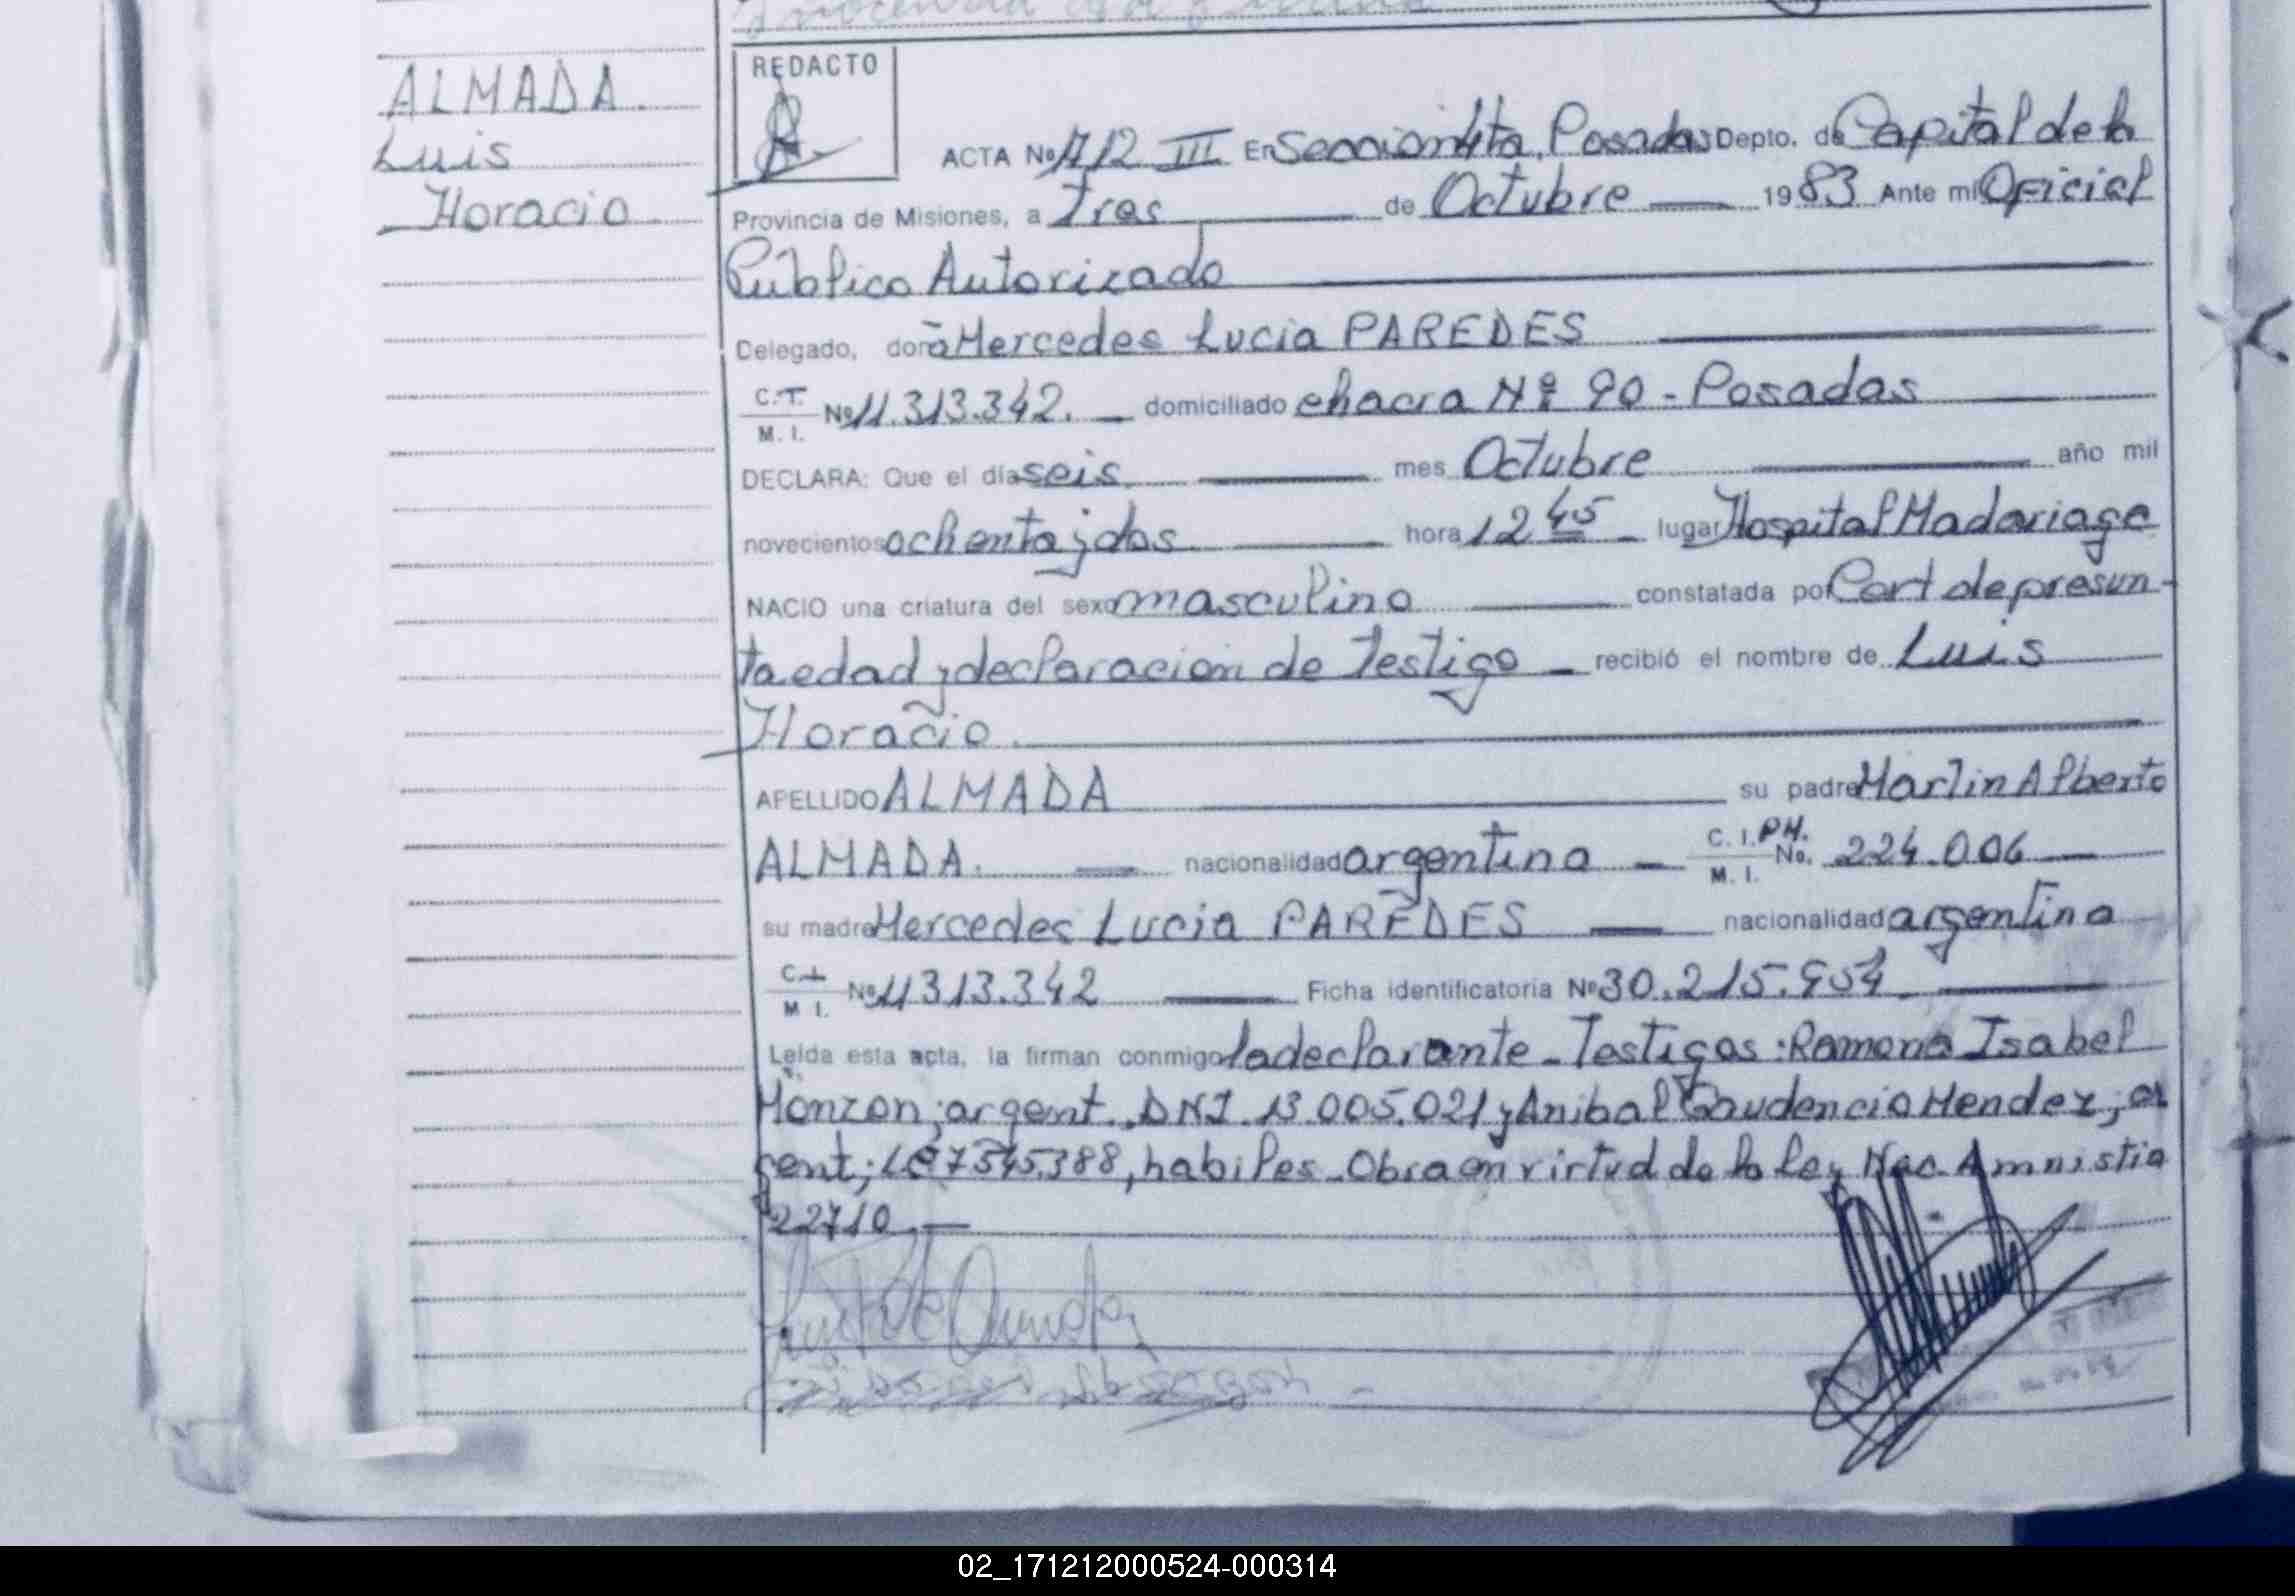 ALMADA
Luis
Horacio
REDACTO
ACTA Nº 712 III En Sección 4ta, Posadas Depto. de Capital de la
Provincia de Misiones, a Tres de Octubre 1983 Ante mi Oficial
Público Autorizado
Delegado, doña Mercedes Lucia PAREDES
C.I.
M. I. Nº 11.313.342. domiciliado chacra Nº 90 - Posadas
DECLARA: Que el día seis mes Octubre año mil
novecientos ochenta y dos hora 12 45 lugar Hospital Madariaga
NACIO una criatura del sexo masculino constatada por Cert de presun-
ta edad y declaración de Testigo recibió el nombre de Luis
Horacio
APELLIDO ALMADA su padre Martin Alberto
ALMADA. nacionalidad argentina C. I. PM.
M. I. No. 224.006
su madre Mercedes Lucia PAREDES nacionalidad argentina
C.I.
M I. Nº 11313.342 Ficha identificatoria Nº 30.215.954
Leída esta acta, la firman conmigo la declarante - Testigos: Ramona Isabel
Monzon; argent. DNI 13.005.021 y Anibal Gaudencio Mendez; ar
gent; LE 7545.388, habiles - Obra en virtud de la Ley Nac. Amnistia
22710.
02_171212000524-000314